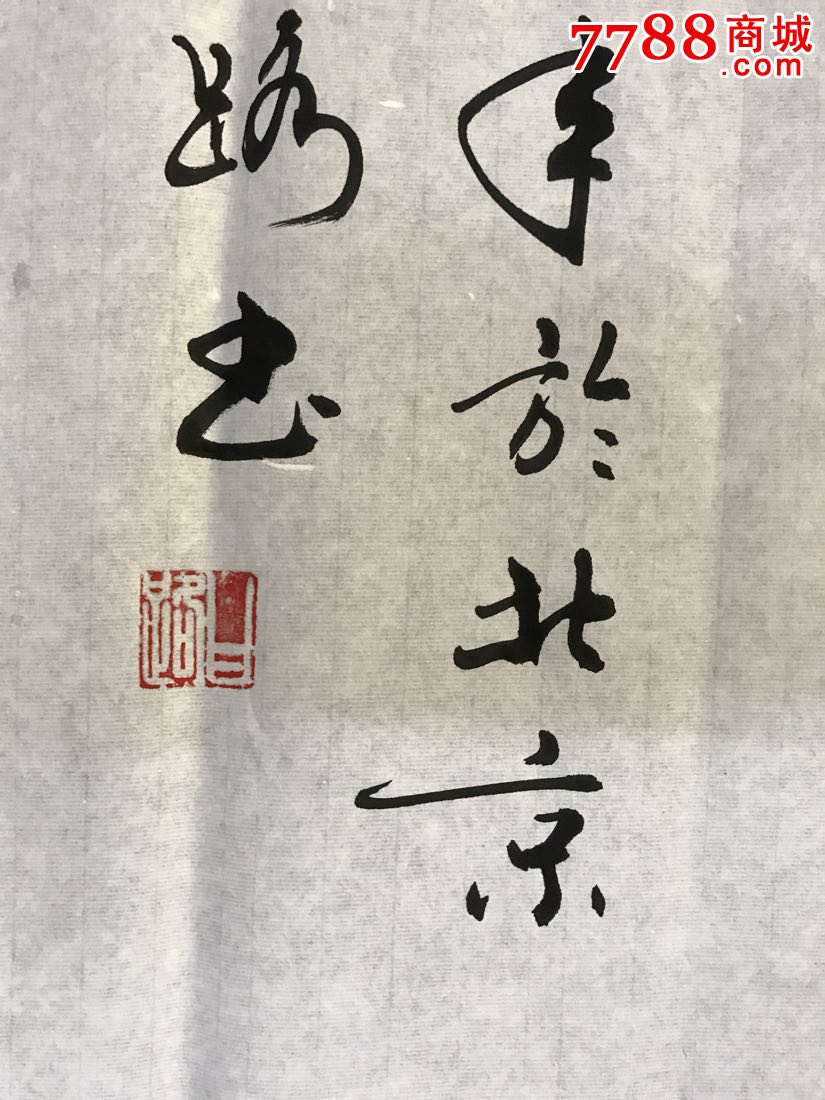 7788商城
.com
年於北京
路书